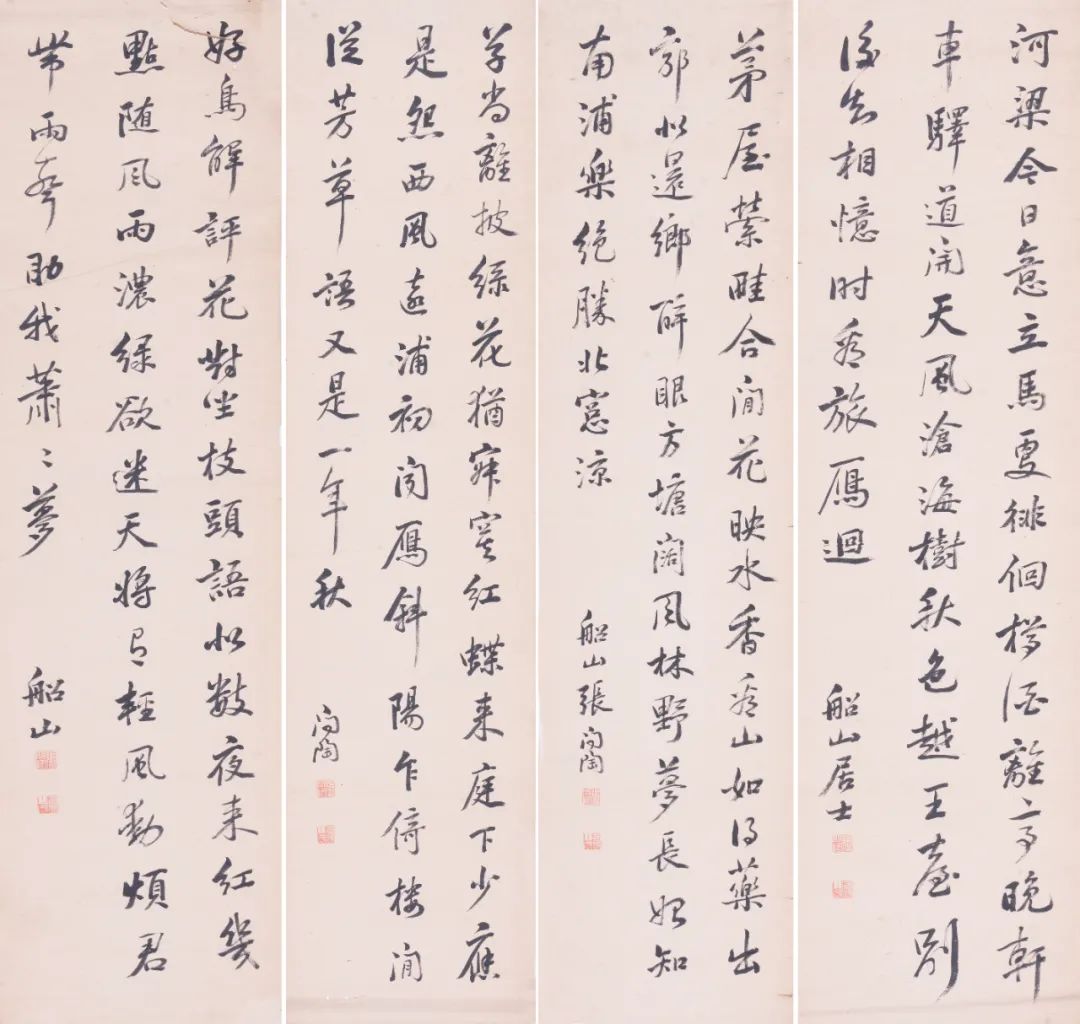 河梁今日意立馬更徘徊樽酒離亭晚軒
車驛道開天風滄海樹秋色越王臺別
後相憶时看旅鴈迴
船山居士
茅屋縈畦合閒花映水香看山如得藥出
郭似還鄉醉眼方塘闊風林野夢長始知
南浦樂絕勝北窓涼
船山張問陶
草尚離披綠花猶寂寞紅蝶来庭下少應
是怨西風遠浦初聞鴈斜陽乍倚樓閒
從芳草語又是一年秋
問陶
好鳥解評花對坐枝頭語似數夜来紅幾
點随風雨濃綠欲迷天將有輕風動煩君
帶雨聲助我蕭〻夢
船山